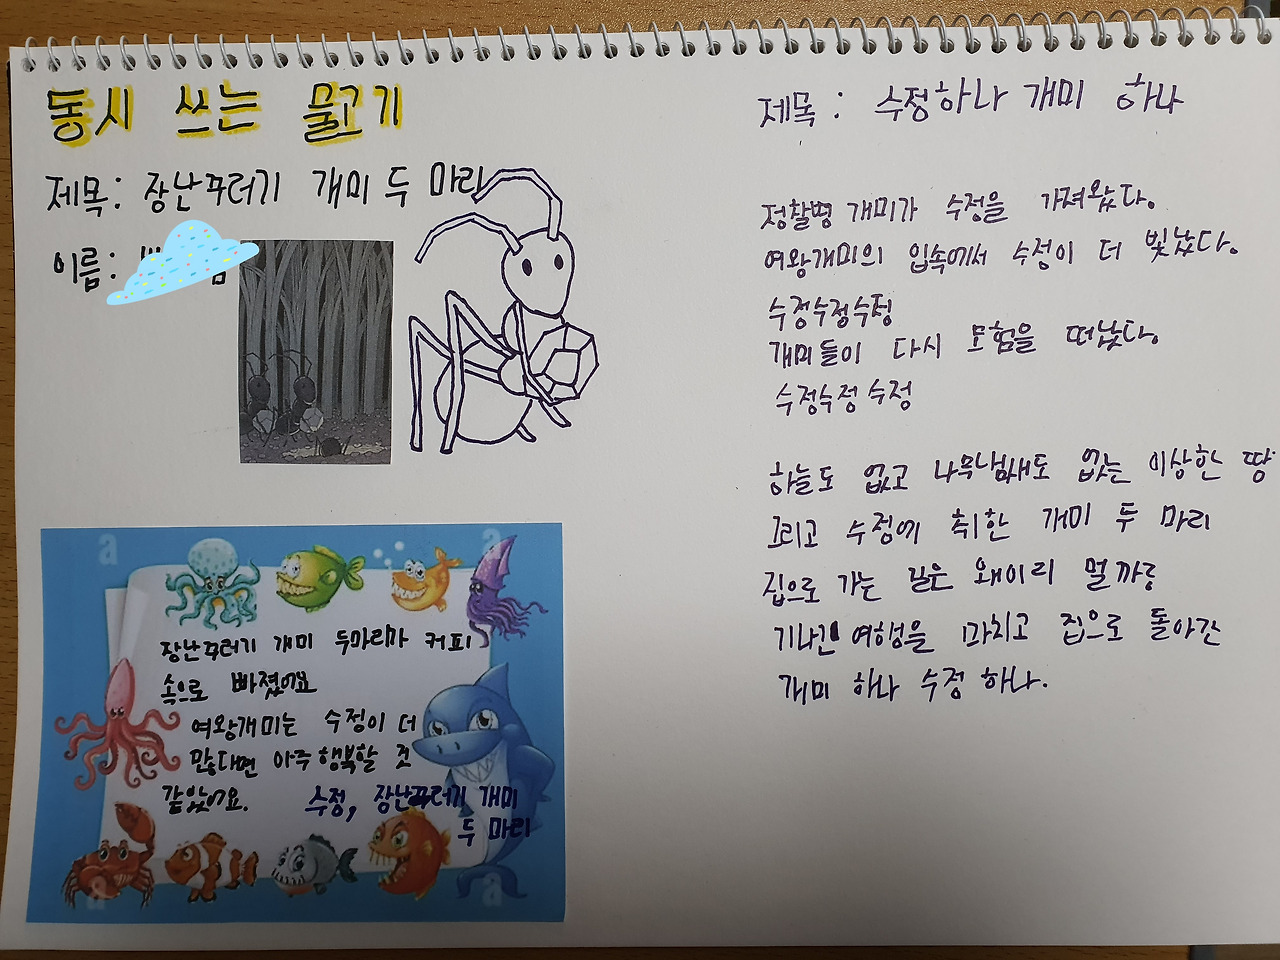 동시 쓰는 물고기
제목: 장난꾸러기 개미 두 마리
이름:
장난꾸러기 개미 두마리마 커피
속으로 빠졌어요
여왕개미는 수정이 더
많다면 아주 행복할 것
같았어요.
수정, 장난꾸러기 개미
두 마리
제목: 수정하나 개미 하나
정찰병 개미가 수정을 가져왔다.
여왕개미의 입속에서 수정이 더 빛났다.
수정수정수정
개미들이 다시 모험을 떠났다.
수정수정 수정
하늘도 없고 나무냄새도 없는 이상한 땅
그리고 수정에 취한 개미 두 마리
집으로 가는 길은 왜이리 멀까?
기나긴 여행을 마치고 집으로 돌아간
개미 하나 수정 하나.